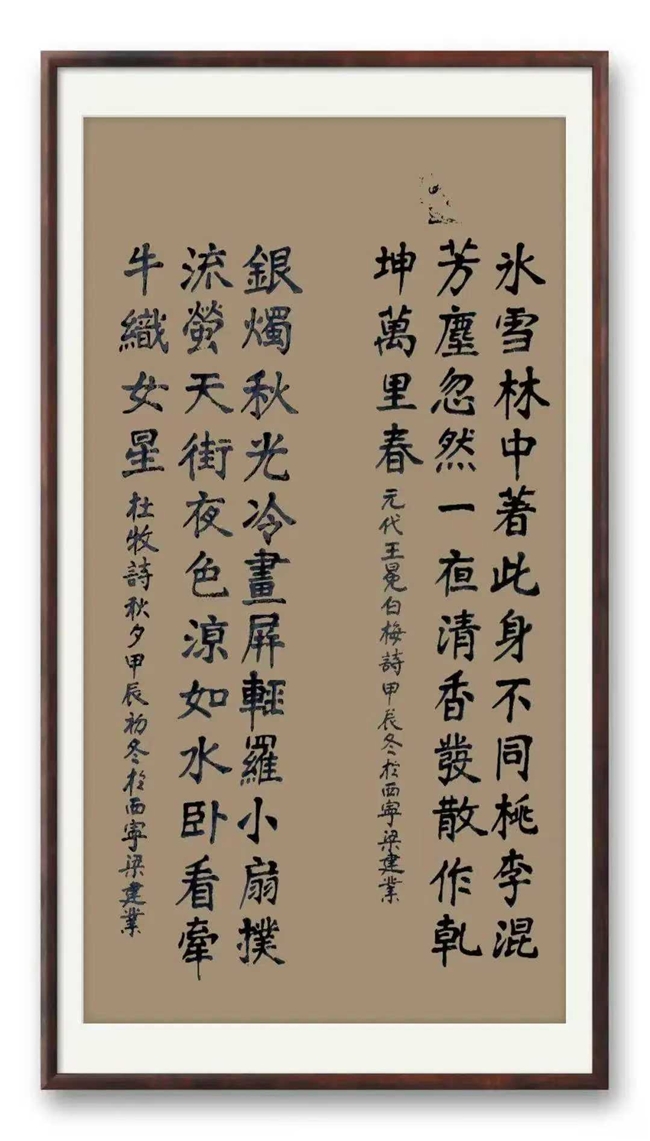 氷雪林中著此身不同桃李混
芳塵忽然一夜清香發散作乹
坤萬里春
元代王冕白梅詩甲辰冬於西寧梁建業
銀燭秋光冷畫屏輕羅小扇撲
流螢天街夜色涼如水卧看牽
牛織女星
杜牧詩秋夕甲辰初冬於西寧梁建業